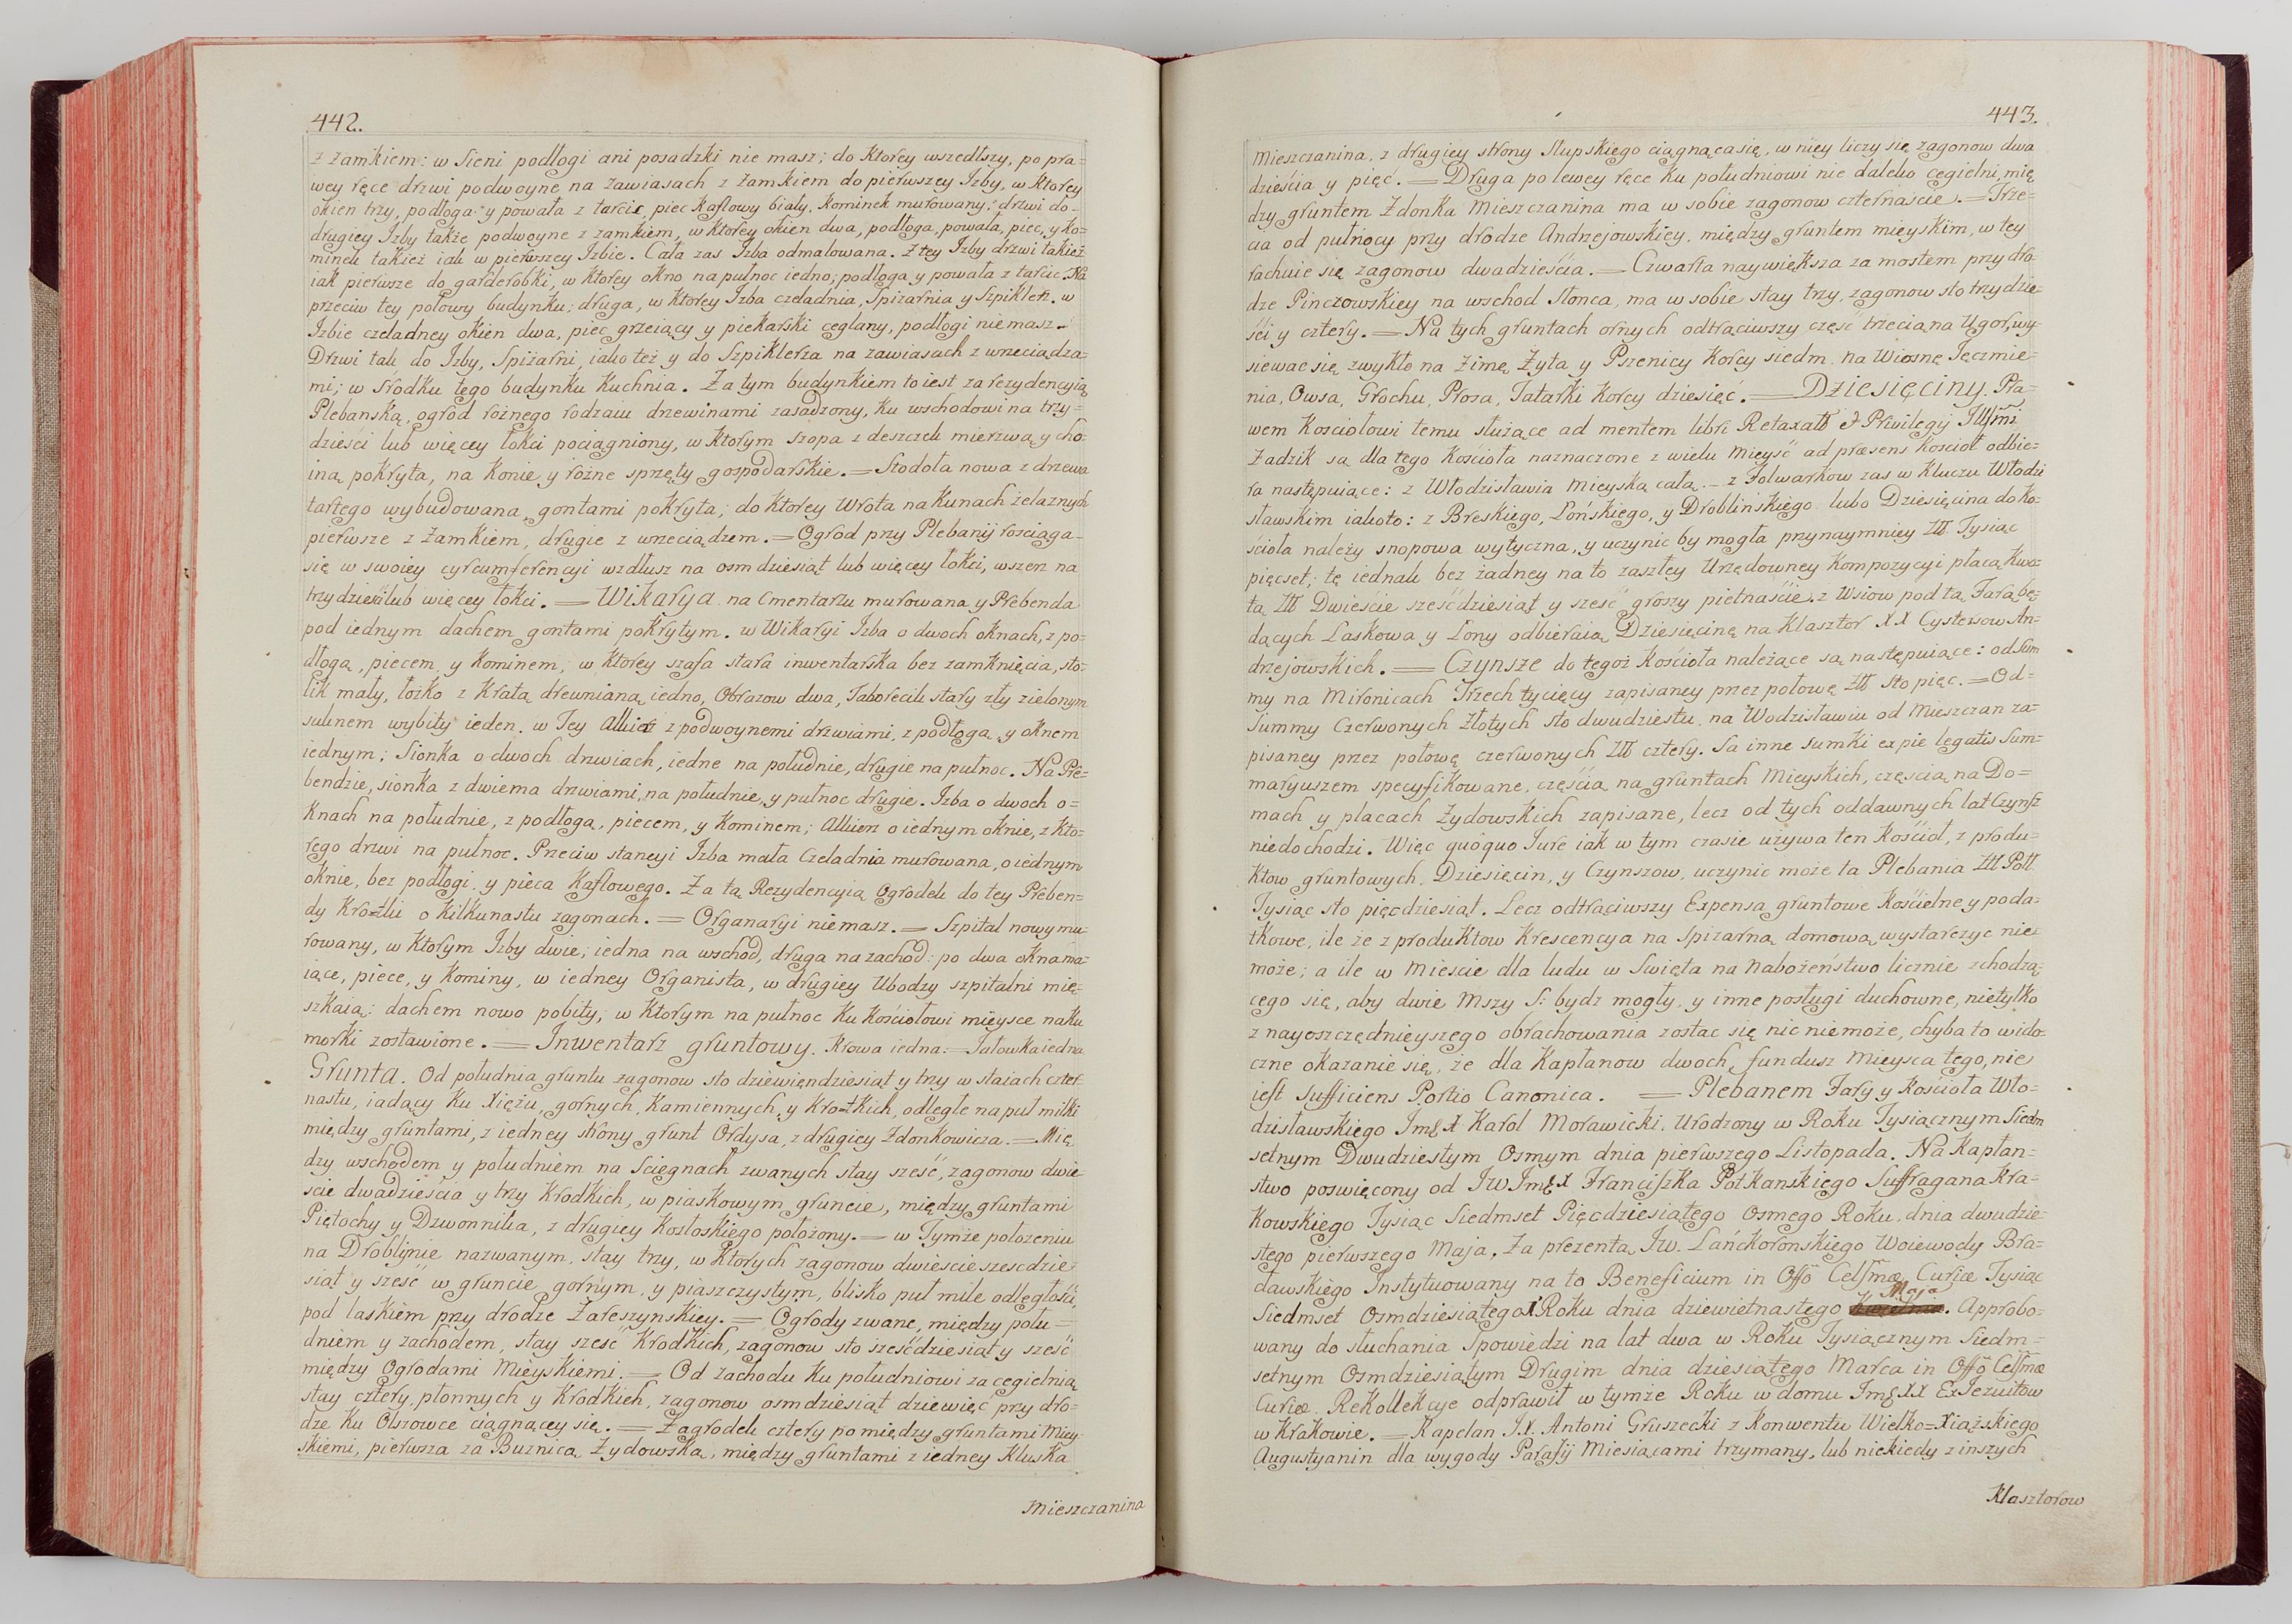 442.
z zamkiem: w Sieni podłogi ani posadzki nie masz; do Ktorey wszedłszy, po pra=
wey ręce drzwi podwoyne na zawiasach z zamkiem do pierwszey Izby, w Ktorey
okien trzy, podłoga y powała z tarcic, piec Kaflowy biały, Kominek murowany: drzwi do
drugiey Izby także podwoyne z zamkiem, w Ktorey okien dwa, podłoga, powała, piec, y ko=
minek takież iak w pierwszey Izbie. Cała zas Izba odmalowana. Z tey Izby drzwi takież
iak pierwsze do garderobki, w Ktorey okno na pułnoc iedno; podłoga y powała z tarcic. Na
przeciw tey połowy budynku; druga, w Ktorey Izba czeladnia, Spizarnia y Szpiklerz. w
Izbie czeladney okien dwa, piec grzeiący y piekarski ceglany, podłogi niemasz.
Drzwi tak do Izby, Spiżarni, iako też y do Szpiklerza na zawiasach z wrzeciądza=
mi; w srodku tego budynku Kuchnia. Za tym budynkiem to iest za rezydencyią
Plebanską, ogrod rożnego rodzaiu drzewinami zasadzony, ku wschodowi na trzy=
dziesci lub więcey łokci pociągniony, w Ktorym szopa z deszczek mierzwą y cho=
iną pokryta, na Konie y rożne sprzęty gospodarskie. = Stodoła nowa z drzewa
tartego wybudowana gontami pokryta; do Ktorey Wrota na Kunach żelaznych
pierwsze z zamkiem, drugie z wrzeciądzem. = Ogrod przy Plebanij rosciąga
się w swoiey cyrcumferencyi wzdłusz na osmdziesiąt lub więcey łokci, wszerz na
trzydziesci lub więcey łokci. = Wikarya na Cmentarzu murowana y Prebenda
pod iednym dachem gontami pokrytym. w Wikaryi Izba o dwoch oknach, z po=
dłogą, piecem y Kominem, w Ktorey szafa stara inwentarska bez zamknięcia, sto=
lik mały, łożko z Kratą drewnianą iedno, Obrazow dwa, Taborecik stary zły zielonym
suknem wybity ieden. w Tey Alkierz z podwoynemi drzwiami, z podłogą y oknem
iednym; Sionka o dwoch drzwiach, iedne na południe, drugie na pułnoc. Na Pre=
bendzie, sionka z dwiema drzwiami, na południe, y pułnoc drugie. Izba o dwoch o=
Knach na południe, z podłogą, piecem, y Kominem; Alkierz o iednym oknie, z Kto=
rego drzwi na pułnoc. Przeciw stancyi Izba mała Czeladnia murowana, o iednym
oknie, bez podłogi y pieca Kaflowego. Za tą Rezydencyią Ogrodek do tey Preben=
dy Krotki o Kilkunastu zagonach. = Organaryi niemasz. = Szpital nowy mu=
rowany, w Ktorym Izby dwie; iedna na wschod, druga na zachod: po dwa okna ma=
iące, piece, y Kominy, w iedney Organista, w drugiey Ubodzy szpitalni mię=
szkaią: dachem nowo pobity; w Ktorym na pułnoc Ku Kościołowi mieysce na ku
morki zostawione. = Inwentarz gruntowy. Krowa iedna. = Jałowka iedna.
Grunta. Od południa gruntu zagonow sto dziewięndziesiąt y trzy w staiach czter
nastu, iadący ku Xiężu, gornych, Kamiennych, y Krotkich, odległe na puł milki
między gruntami, z iedney strony grunt Ordysa, z drugiey Zdonkowicza. = Mię
dzy wschodem y południem na Sciegnach zwanych stay sześć, zagonow dwie
scie dwadzieścia y trzy Krodkich, w piaskowym gruncie, między gruntami
Piętochy y Dzwonnika, z drugiey Kozłoskiego położony. = w Tymże położeniu
na Droblynie nazwanym, stay trzy, w Ktorych zagonow dwieście szescdzie
siąt y sześć w gruncie gornym, y piaszczystym, blisko puł mile odległości,
pod laskiem przy drodze Zareszynskiey. = Ogrody zwane, między połu=
dniem y zachodem, stay sześć Krodkich, zagonow sto sześćdziesiąt y sześć
między Ogrodami Mieyskiemi. = Od zachodu Ku południowi za cegielnią
stay cztery, płonnych y Krodkich, zagonow osmdziesiąt dziewięć przy dro=
dze Ku Olszowce ciągnącey się. = Zagrodek cztery pomiędzy gruntami Miey
skiemi, pierwsza za Bużnicą Zydowską, między gruntami z iedney Kluska
Mieszczanina
443.
Mieszczanina, z drugiey strony Słupskiego ciągnąca się, w niey liczy się zagonow dwa
dzieścia y pięć. = Druga po lewey ręce ku południowi nie daleko cegielni, mię
dzy gruntem Zdonka Mieszczanina ma w sobie zagonow czternaście. = Trze=
cia od pułnocy przy drodze Andrzejowskiey, między gruntem mieyskim, w tey
rachuie się zagonow dwadzieścia. = Czwarta naywiększa za mostem przy dro
dze Pinczowskiey na wschod Słonca, ma w sobie stay trzy, zagonow sto trzydzie
ści y cztery. = Na tych gruntach ornych odtrąciwszy część trzecią na Ugor, wy=
siewać się zwykło na Zimę Zyta y Pszenicy Korcy siedm. Na Wiosnę Jęczmie=
nia, Owsa, Grochu, Prosa, Tatarki Korcy dziesięć. = Dziesięciny. Pra=
wem Kościołowi temu służące ad mentem libri Retaxatt & Privilegij Illsmi
Zadzik są dla tego Kościoła naznaczone z wielu mieysć ad præsens Kościoł odbie=
ra następuiące: z Włodzisławia Mieyska cała. – z Folwarkow zas w Kluczu Włodzi
sławskim iakoto: z Breskiego, Łońskiego, y Droblinskiego lubo Dziesięcina do Ko=
ścioła należy snopowa wytyczna, y uczynić by mogła przynaymniey Złł. Tysiąc
pięcset; tę iednak bez żadney na to zaszłey Urzędowney Kompozycyi płacą Kwo=
tą Złł Dwieście sześćdziesiąt y sześć groszy pietnaście. z Wsiow pod tą Farą bę=
dących Laskowa y Lony odbieraią Dziesięcinę na Klasztor XX Cystersow An=
drzejowskich. = Czynsze do tegoż Kościoła należące są następuiące: od Sum
my na Mironicach Trzech tycięcy zapisaney przez połowę Złł Sto pięc. = Od=
Summy Czerwonych Złotych sto dwudziestu na Wodzisławiu od Mieszczan za=
pisaney przez połowę czerwonych Złł cztery. Są inne Sumki ex pie legatis Sum=
maryuszem specyfikowane, częścią na gruntach Mieyskich, częścią na Do=
mach y placach Zydowskich zapisane, lecz od tych oddawnych lat Czynsz
niedochodzi. Więc quóquo Jure iak w tym czasie używa ten Kościoł, z produ=
Ktow gruntowych, Dziesięcin, y Czynszow, uczynić może ta Plebania Złł Poll
Tysiąc sto pięcdziesiąt. Lecz odtrąciwszy Expensa gruntowe Kościelne y poda=
tkowe, ile że z produktow Krescencya na Spizarną domową wystarczyć nie=
może; a ile w Mieście dla ludu w Święta na Nabożeństwo licznie zchodzą=
cego się, aby dwie Mszy S: bydz mogły, y inne posługi duchowne, nietylko
z nayoszczędnieyszego obrachowania zostac się nic niemoże, chyba to wido=
czne okazanie się, że dla Kapłanow dwoch, fundusz Mieysca tego, nie
iest Sufficiens Portio Canonica. = Plebanem Fary y Kościoła Wło=
dzisławskiego Jmć X Karol Morawicki. Urodzony w Roku Tysiącznym Siedm
setnym Dwudziestym Osmym dnia pierwszego Listopada. Na Kapłan=
stwo poswięcony od JW Jmć X Franciszka Potkanskiego Suffragana Kra=
Kowskiego Tysiąc Siedmset Pięcdziesiątego Osmego Roku, dnia dwudzie=
stego pierwszego Maja. Za prezentą JW. Lańckoronskiego Woiewody Bra=
cławskiego Instytuowany na to Beneficium in Offo Celsmæ Curiæ Tysiąc
Maja
Siedmset Osmdziesiątego Roku dnia dziewietnastego . Approbo=
wany do słuchania Spowiedzi na lat dwa w Roku Tysiącznym Siedm=
setnym Osmdziesiątym Drugim dnia dziesiątego Marca in Offo Celsmæ
Curiæ. Rekollekcye odprawił w tymże Roku w domu Jmć XX ExJezuitow
w Krakowie. = Kapelan JX. Antoni Gruszecki z Konwentu Wielko=Xiążskiego
Augustyanin dla wygody Parafij Miesiącami trzymany, lub niekiedy z inszych
Klasztorow